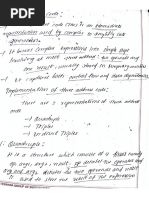 code :-
three address code is an intermediate
representation used by compiler to simplify code
generation.
It breaks complex expressions into simple steps
involving at most three address: two operands and
one result, usually stored in temporary variables
It captures both control flow and data dependencies.
Implementation of three address code:
There are 3 representations of three address
code
→ Quadruple
→ Triples
→ Indirect Triples
1. Quadruple:
It is a structure which consists of 4 fields namely
op, arg1, arg2, result. op denotes the operator and
arg1 and arg2 denotes the two operands and result
used to store the result of the expression